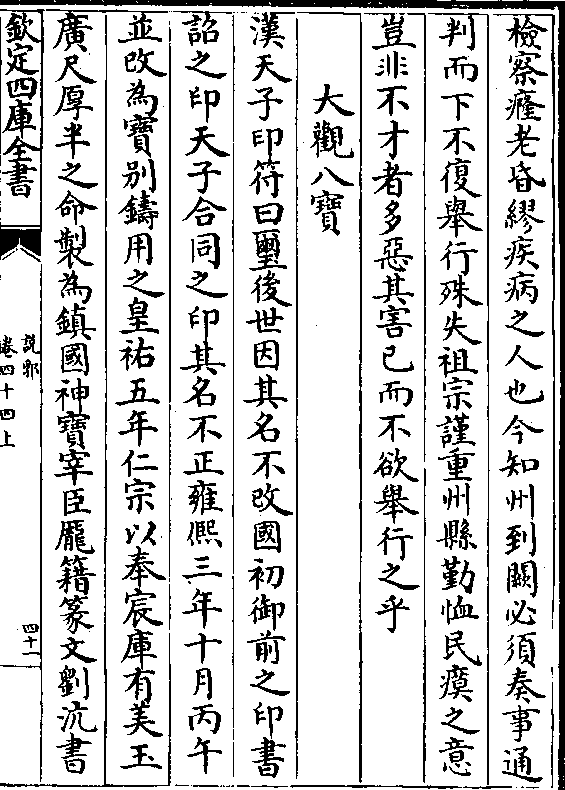 檢察癃老昏繆疾病之人也今知州到闕必須奏事通
判而下不復舉行殊失祖宗謹重州縣勤恤民瘼之意
豈非不才者多惡其害已而不欲舉行之乎
大觀八寶
漢天子印符曰璽後世因其名不改國初御前之印書
詔之印天子合同之印其名不正雍熈三年十月丙午
並改為寶别鑄用之皇祐五年仁宗以奉宸庫有美玉
廣尺厚半之命製為鎮國神寶宰臣龎籍篆文劉沆書
欽定四庫全書
說郛
卷四十四上
四十